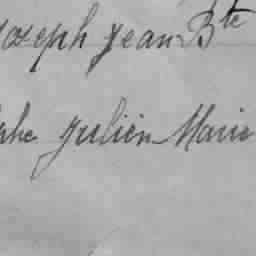 Joseph Jean Bte
Julien Marie